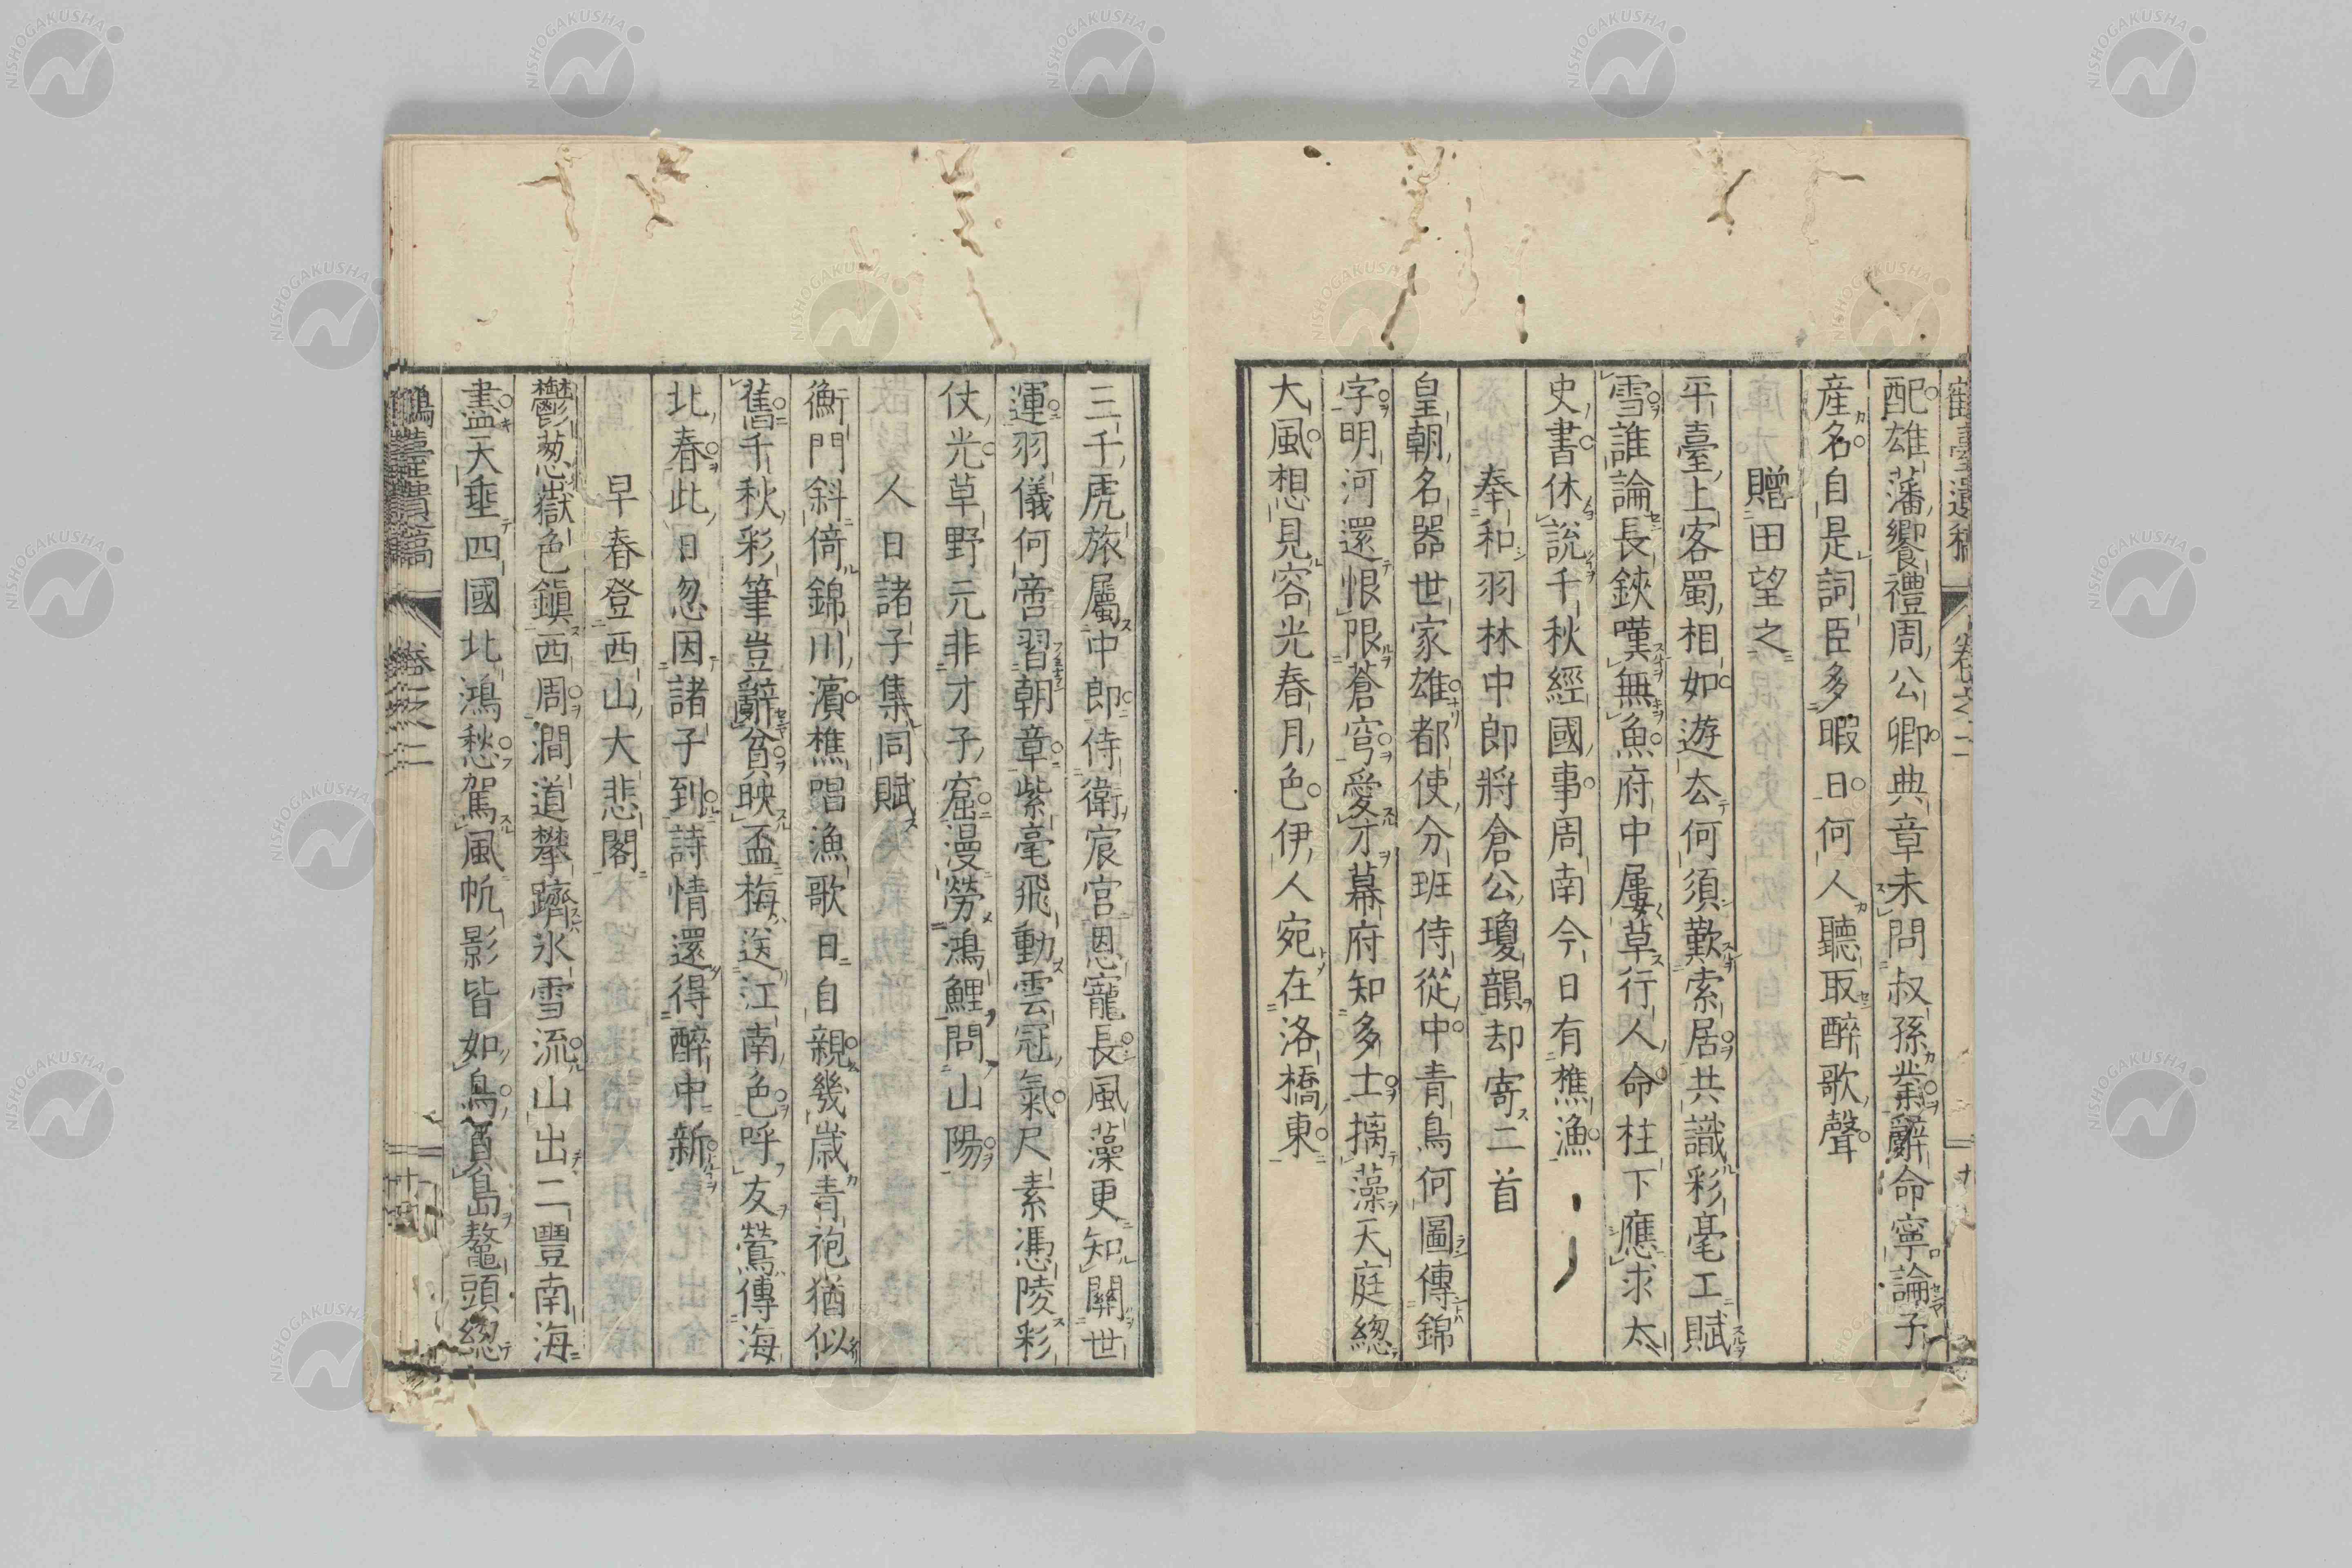 配雄藩饗禮周公卿典章未問叔孫業辭命寧論子
産名自是詞臣多暇日何人聽取醉歌聲
贈田望之
平臺上客蜀相如遊厺何須歎索居共識彩毫工賦
雪誰論長鋏嘆無魚府中屢草行人命柱下應求太
史書休說千秋經國事周南今日有樵漁
奉和羽林中郎將倉公瓊韻却寄二首
皇朝名器世家雄都使分班侍從中青鳥何圖傳錦
字明河還恨限蒼穹愛才幕府知多士摛藻天庭總
大風想見容光春月色伊人宛在洛橋東
三千虎旅屬中郎侍衛宸宮恩寵長風藻更知關世
運羽儀何啻習朝章紫毫飛動雲冠氣尺素憑陵彩
仗光草野元非才子窟漫勞鴻鯉問山陽
人日諸子集同賦
衡門斜倚錦川濱樵唱漁歌日自親幾歳青袍猶似
舊千秋彩筆豈辭貧映盃梅送江南色呼友鶯傳海
北春此日忽因諸子到詩情還得醉中新
早春登西山大悲閣
鬱葱嶽色鎭西周澗道攀躋氷雪流山出二豐南海
盡天垂四國北鴻愁駕風帆影皆如鳥負島鼇頭總
鶴臺遺稿 卷之二
NISHOGAKUSHA